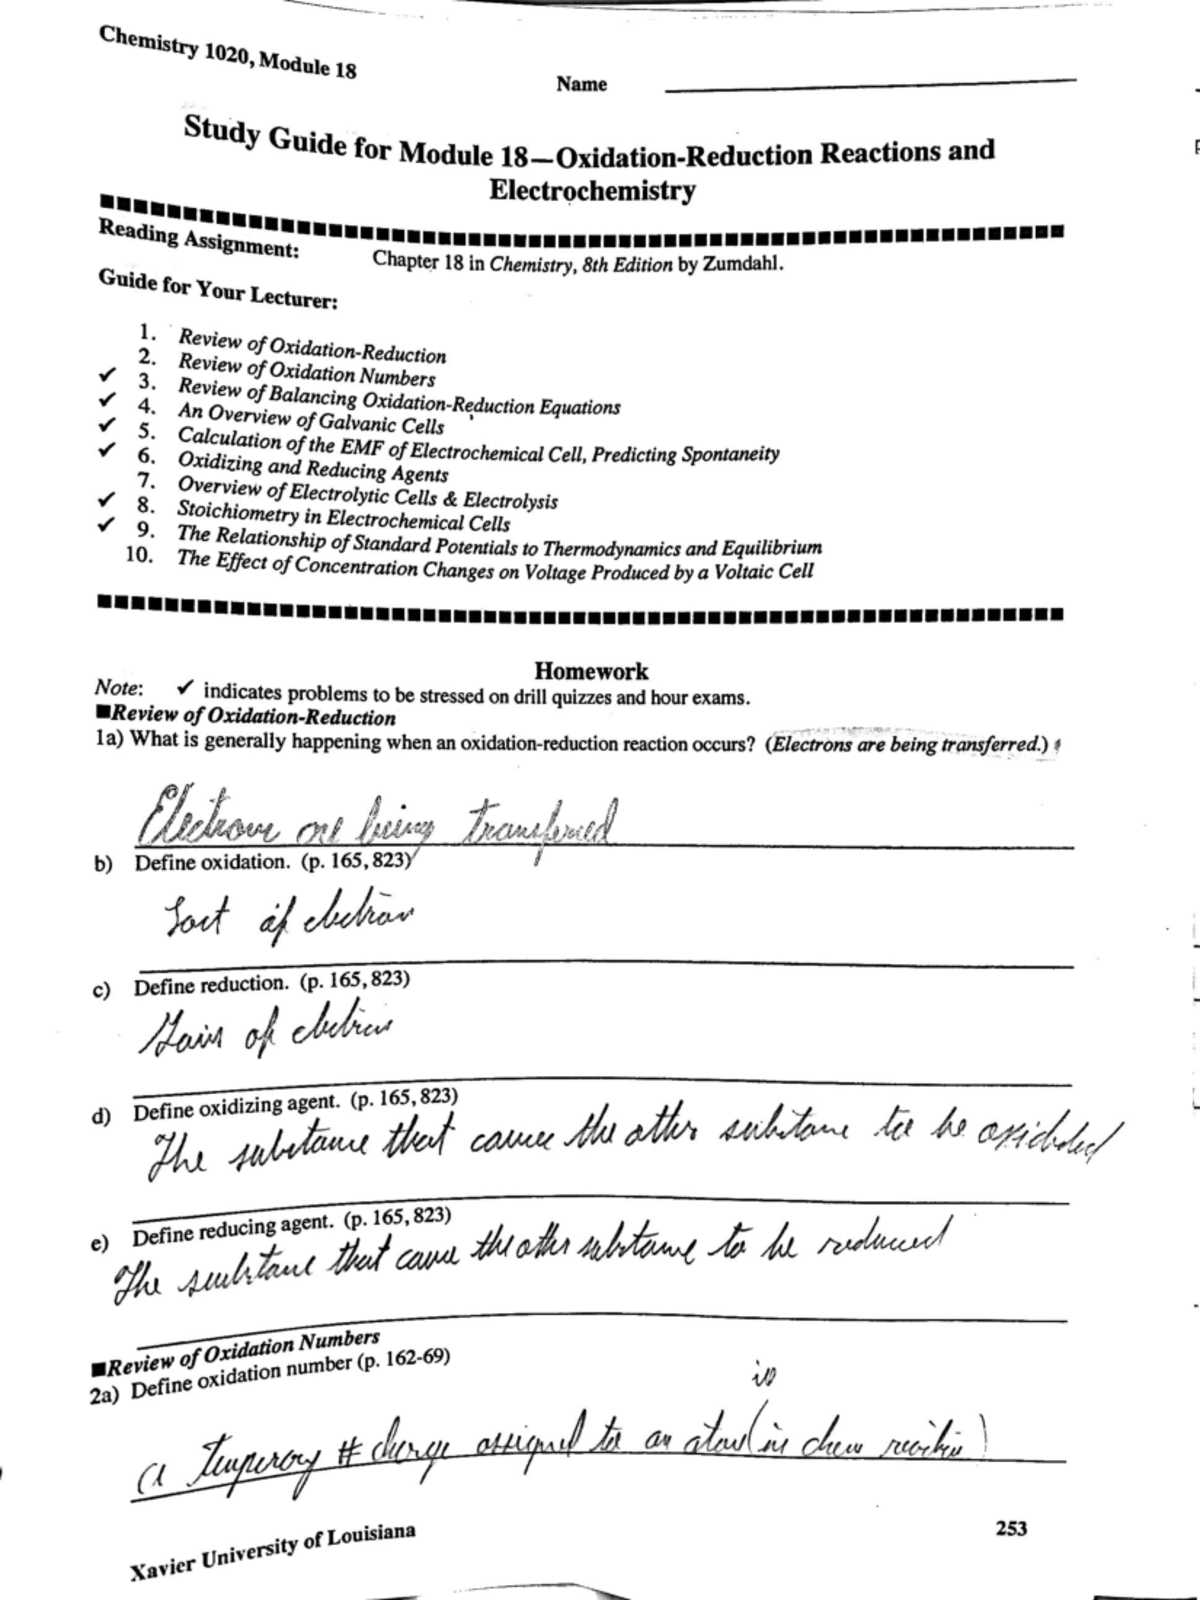 Chemistry 1020, Module 18
Name
Study Guide for Module 18—Oxidation-Reduction Reactions and
Electrochemistry
Reading Assignment: Chapter 18 in Chemistry, 8th Edition by Zumdahl.
Guide for Your Lecturer:
1. Review of Oxidation-Reduction
2. Review of Oxidation Numbers
✓ 3. Review of Balancing Oxidation-Reduction Equations
✓ 4. An Overview of Galvanic Cells
✓ 5. Calculation of the EMF of Electrochemical Cell, Predicting Spontaneity
✓ 6. Oxidizing and Reducing Agents
7. Overview of Electrolytic Cells & Electrolysis
✓ 8. Stoichiometry in Electrochemical Cells
✓ 9. The Relationship of Standard Potentials to Thermodynamics and Equilibrium
10. The Effect of Concentration Changes on Voltage Produced by a Voltaic Cell
Homework
Note: ✓ indicates problems to be stressed on drill quizzes and hour exams.
■Review of Oxidation-Reduction
1a) What is generally happening when an oxidation-reduction reaction occurs? (Electrons are being transferred.)
Electrons are being transferred
b) Define oxidation. (p. 165, 823)
of electron
c) Define reduction. (p. 165, 823)
Gain of electrons
d) Define oxidizing agent. (p. 165, 823)
The substance that cause the other substance to be oxidized
e) Define reducing agent. (p. 165, 823)
The substance that cause the other substance to be reduced
■Review of Oxidation Numbers
2a) Define oxidation number (p. 162-69)
is
a temperory # charge assigned to an atom (in chem )
Xavier University of Louisiana
253